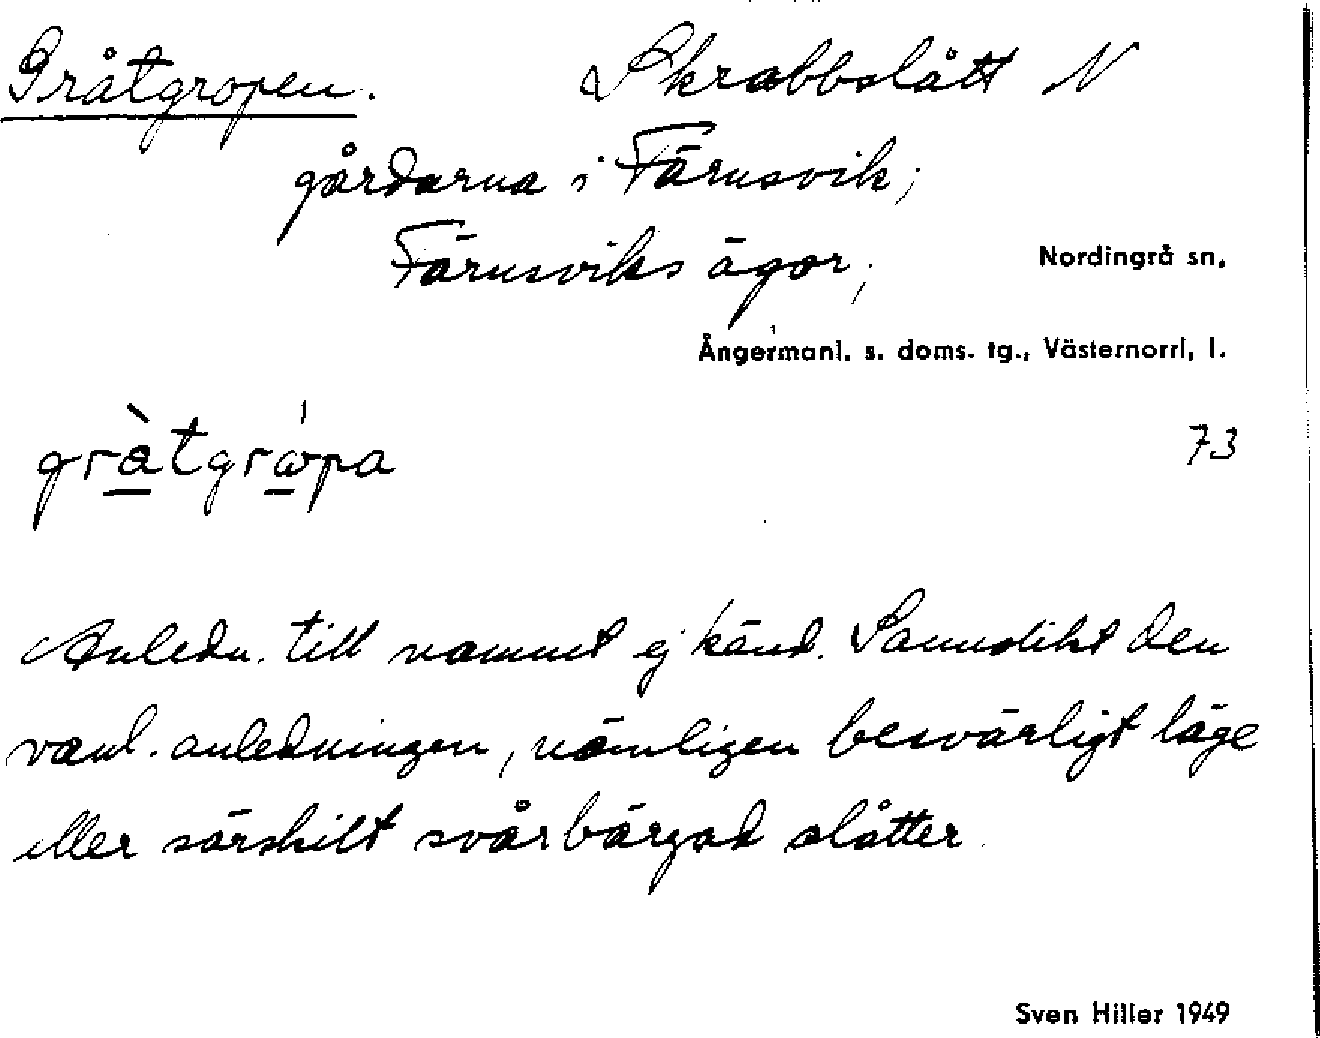 Gråtgropen. Skrabbslått N
gårdarna i Färnsvik;
Färnsviks ägor;
Nordingrå sn.
Ångermanl. s. doms. tg., Västernorrl. l.
73
gràtgrópa
Anledn. till namnet ej känd. Sannolikt den
vanl. anledningen, nämligen besvärligt läge
eller särskilt svårbärgad slåtter.
Sven Hiller 1949